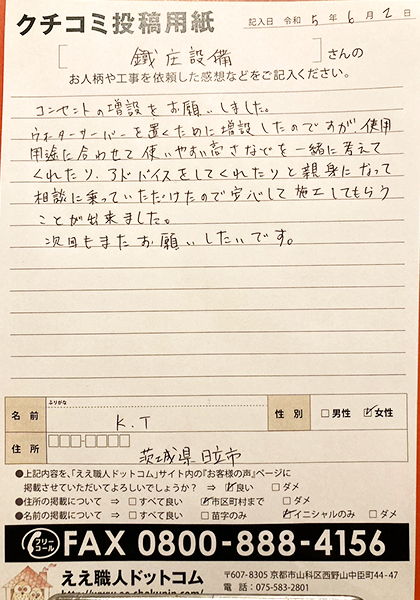 クチコミ投稿用紙
記入日 令和 5 年 6 月 2 日
[ 鐵庄設備 ] さんの
お人柄や工事を依頼した感想などをご記入ください。
コンセントの増設をお願いしました。
ウォーターサーバーを置くために増設したのですが、使用
用途に合わせて使いやすい高さなどを一緒に考えて
くれたり、アドバイスをしてくれたりと親身になって
相談に乗っていただけたので安心して施工してもらう
ことが出来ました。
次回もまたお願いしたいです。
ふりがな
名前 K.T 性別 □男性 ☑女性
住所 □□□-□□□□
茨城県日立市
●上記内容を、「ええ職人ドットコム」サイト内の『お客様の声』ページに
掲載させていただいてよろしいでしょうか? ⇒ ☑良い □ダメ
●住所の掲載について ⇒ □すべて良い ☑市区町村まで □ダメ
●名前の掲載について ⇒ □すべて良い □苗字のみ ☑イニシャルのみ □ダメ
フリーコール FAX 0800-888-4156
ええ職人ドットコム
〒607-8305 京都市山科区西野山中臣町44-47
電話:075-583-2801